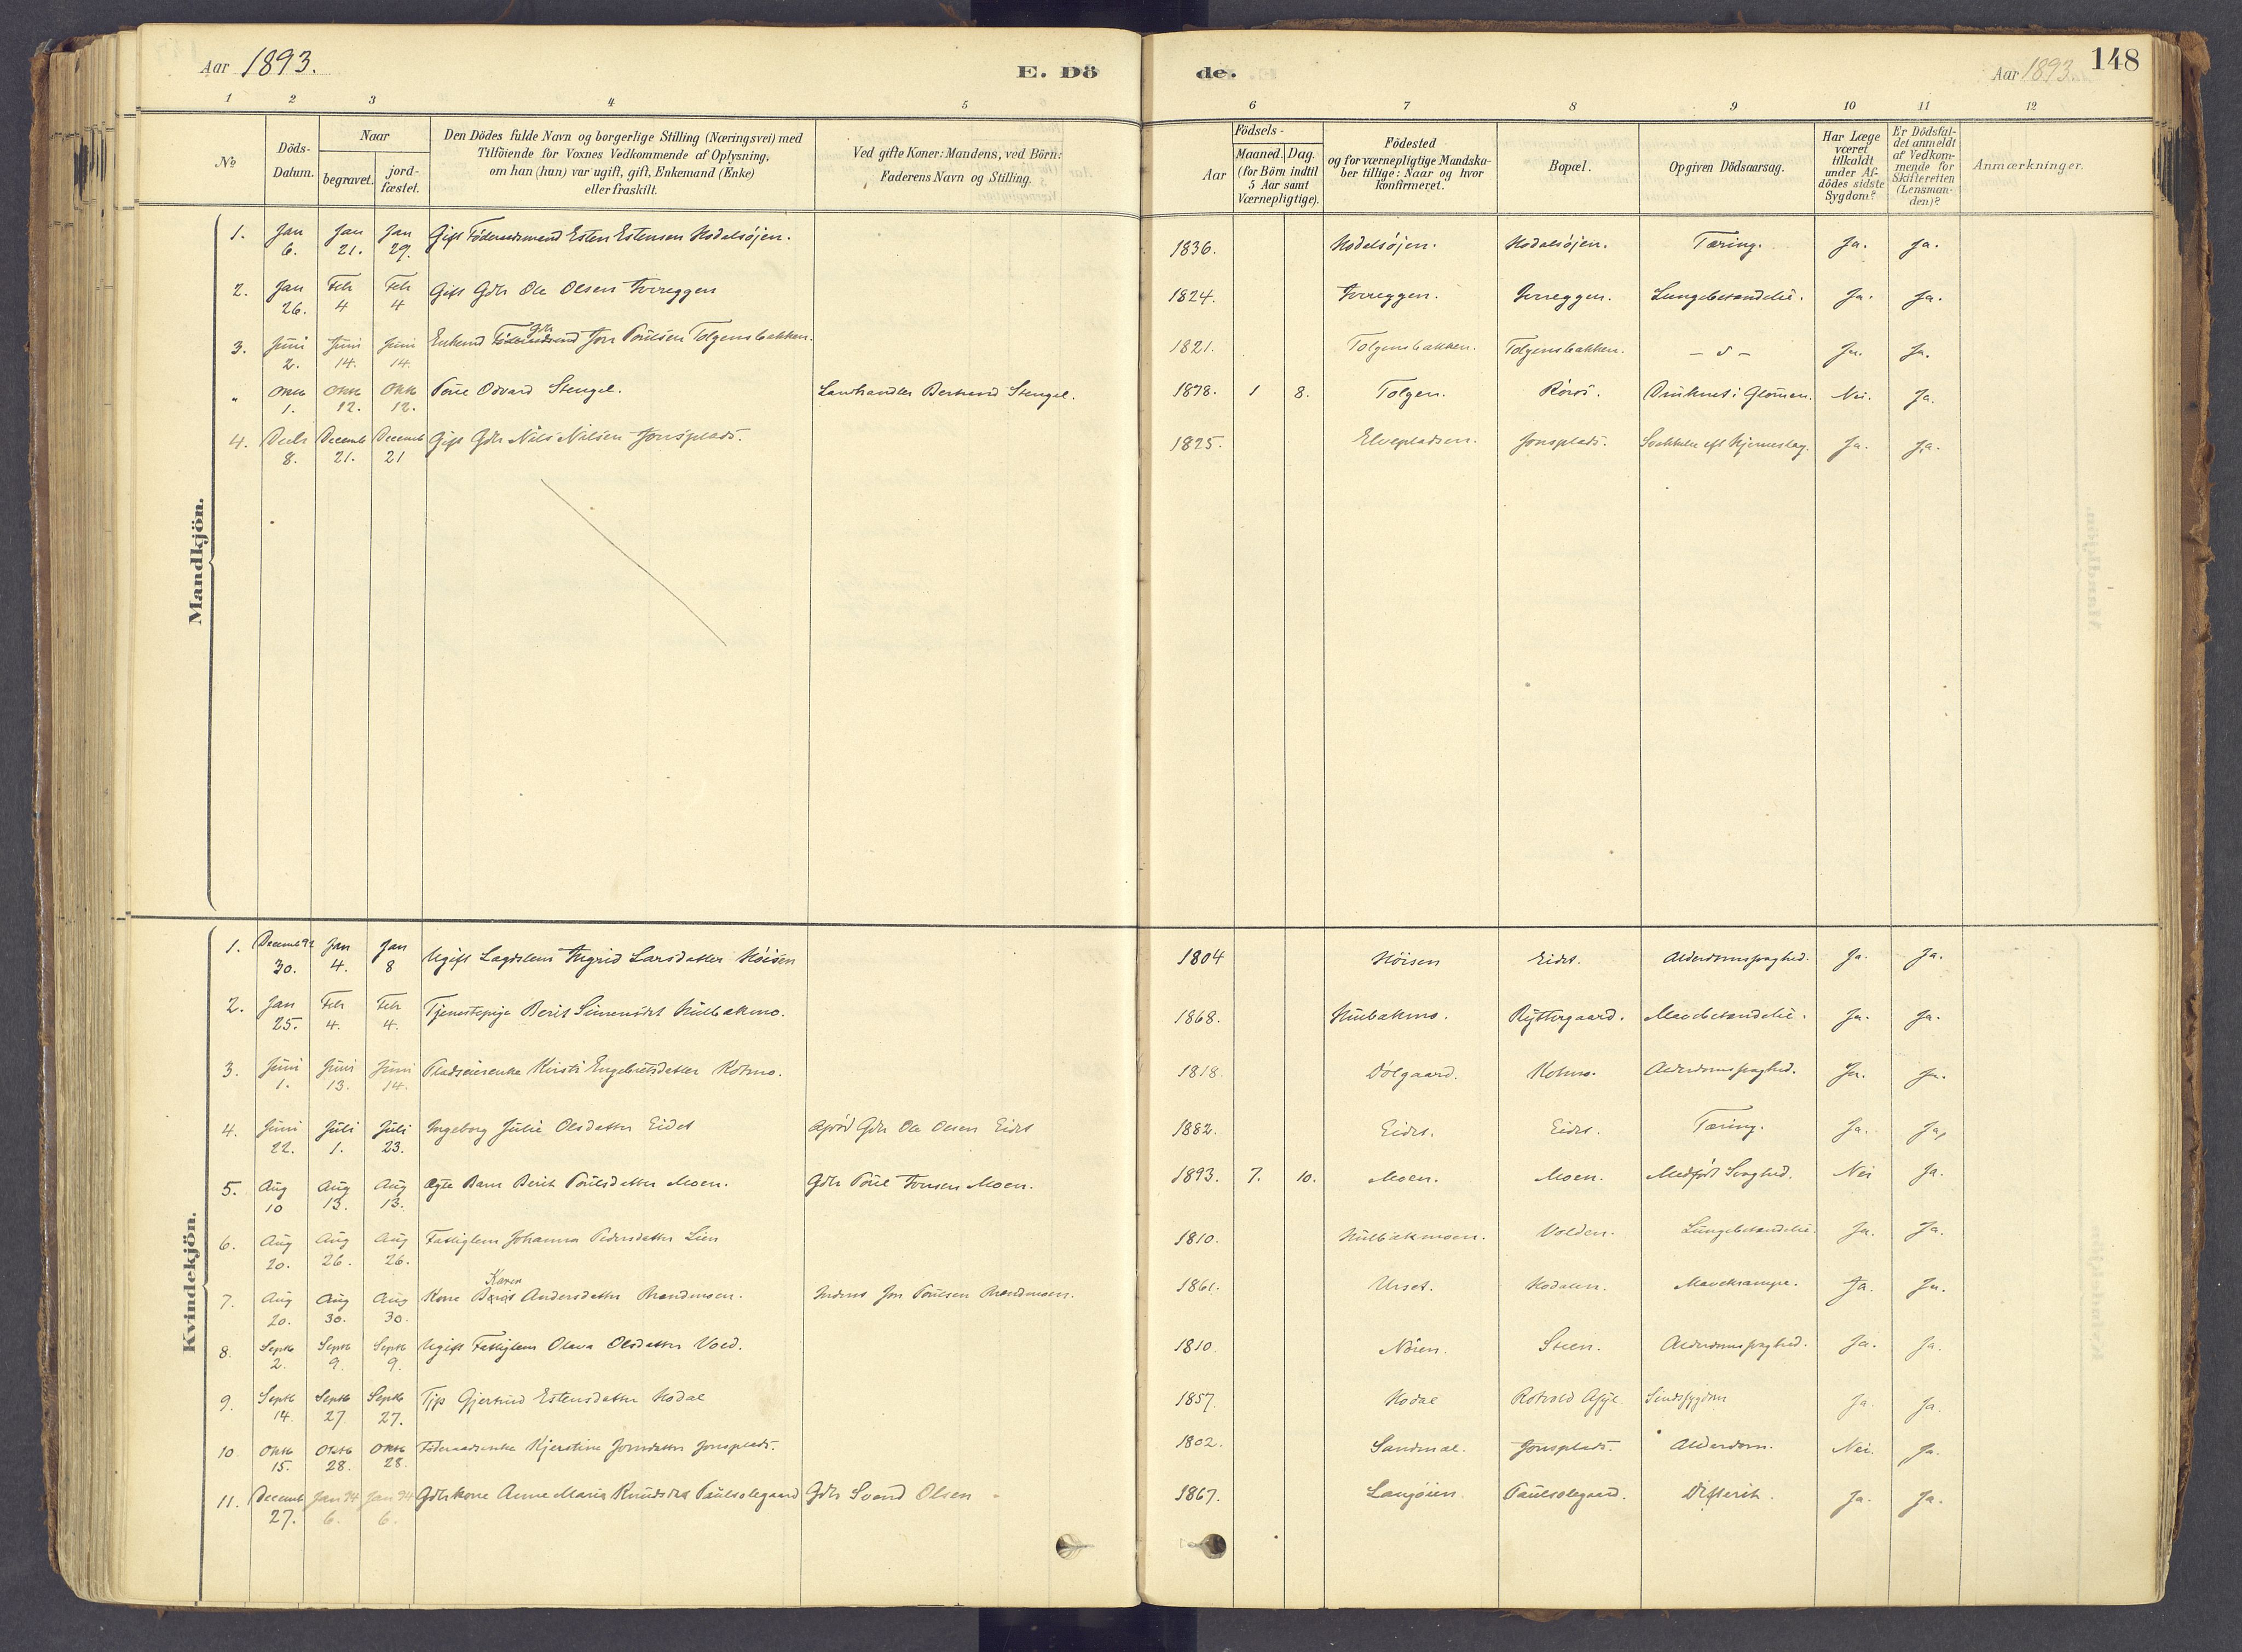 Aar 1893. E. Dö de. Aar 1893. 148
1 2 3 4 5 6 7 8 9 10 11 12
No
Döds-Datum.
Naar
begravet.
jord-fæstet.
Den Dödes fulde Navn og borgerlige Stilling (Næringsvei) med
Tilföiende for Voxnes Vedkommende af Oplysning,
om han (hun) var ugift, gift, Enkemand (Enke)
eller fraskilt.
Ved gifte Koner: Mandens, ved Börn:
Faderens Navn og Stilling.
Födsels-
Aar
Maaned. Dag.
(for Börn indtil
5 Aar samt
Værnepligtige).
Födested
og for værnepligtige Mandska-
ber tillige: Naar og hvor
konfirmeret.
Bopæl.
Opgiven Dödsaarsag.
Har Læge
været
tilkaldt
under Af-
dödes sidste
Sygdom?
Er Dödsfal-
det anmeldt
af Vedkom-
mende for
Skifteretten
(Lensman-
den)?
Anmærkninger.
Mandkjön.
1. Jan 6. Jan 21. Jan 29. Gift Föderaadsmand Esten Estensen Hodalsöjen. 1836. Hodalsöjen. Hodalsöjen. Tæring. Ja. Ja.
2. Jan 26. Feb 4 Feb 4 Gift Gdb Ole Olsen 1824. Lungebetændelse. Ja. Ja.
3. Juni 2. Juni 14. Juni 14. Enkemd Gdb Jon Paulsen Tolgensbakken. 1821. Tolgensbakken. Tolgensbakken. Ja. Ja.
" Oktb 1. Oktb 12. Oktb 12. Odvard Stengel. Landhandler Stengel. 1878. 1 8. Tolgen. Röros. Druknet i Glomen. Nei. Ja.
4. Decb 8. Decemb 21. Decemb 21 Gift Gdb Nils Nilsen Jonsplads. 1825. Elvepladsen. Jonsplads. Svækkelse eft Hjerneslag. Ja. Ja.
Kvindekjön.
1. Decemb 92 30. Jan 4. Jan 8 Ugift Lægdslem Ingrid Larsdatter Höisen 1804 Höisen Eidet. Alderdomssvaghed. Ja. Ja.
2. Jan 25. Feb 4. Feb 4. Tjenestepige Berit Simensdt 1868. Ryttergaard. Mavebetændelse. Ja. Ja.
3. Juni 1. Juni 13. Juni 14. Pladseierenke Kirsti Engebretsdatter Kotmo. 1818. Dölgaard. Kotmo. Alderdomssvaghed. Ja. Ja.
4. Juni 22. Juli 1. Juli 23. Ingeborg Julie Olsdatter Eidet Gdb Ole Olsen Eidet 1882. Eidet. Eidet. Tæring. Ja. Ja,
5. Aug 10 Aug 13. Aug 13. Ægte Barn Berit Paulsdatter Moen. Gdb Paul Moen. 1893. 7. 10. Moen. Moen. Medfödt Svaghed. Nei Ja.
6. Aug 20. Aug 26. Aug 26. Fattiglem Johanna Pedersdatter Lien 1810. Volden. Lungebetændelse. Ja. Ja.
7. Aug 20. Aug 30. Aug 30. Kone Karen Andersdatter Brandmoen. Jon Paulsen Brandmoen. 1861. Urset. Hodalen. Mavekrampe. Ja. Ja.
8. Septb 2. Septb 9. Septb 9. Ugift Fattiglem Olava Olsdatter Vold. 1810. Nören. Steen. Alderdomssvaghed. Ja. Ja.
9. Septb 14. Septb 27. Septb 27. Tjp Gjertrud Estensdatter Hodal 1857. Hodal Rotvold Asyl Sindssygdom Ja. Ja.
10. Oktb 15. Oktb 28. Oktb 28. Föderaadsenke Kjerstine Jonsdatter Jonsplads. 1802. Sandmæl. Jonsplads. Alderdom. Nei. Ja.
11. Decemb 27. Jan 94 6. Jan 94 6. Gdbkone Anne Maria Knudsdtr Paulsolegaard Gdb Svend Olsen 1867. Langöien. Paulsolegaard. Difterit. Ja. Ja.